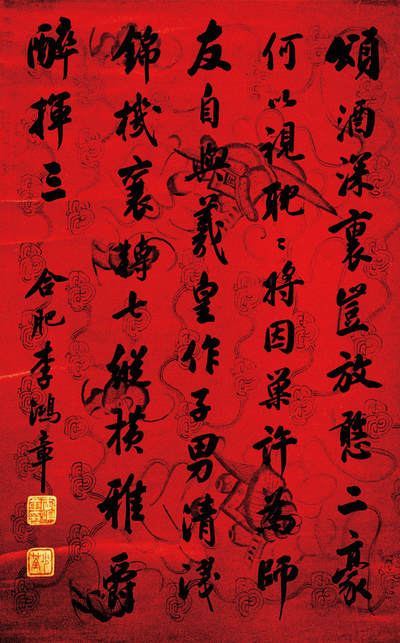 頌酒深裏豈放憨二豪
何以視耽〻將因巢許為師
友自與羲皇作子男清淺
錦機裏轉七縱橫雅爵
醉揮三
合肥李鴻章